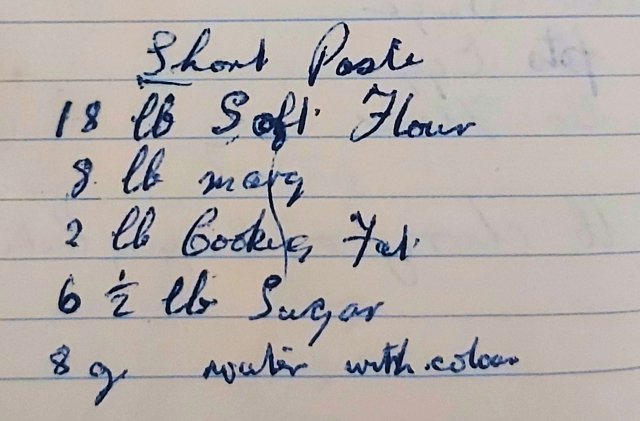 Short Paste
18 lb Soft Flour
8 lb marg
2 lb Cooking Fat
6 ½ lb Sugar
8 g water with colour